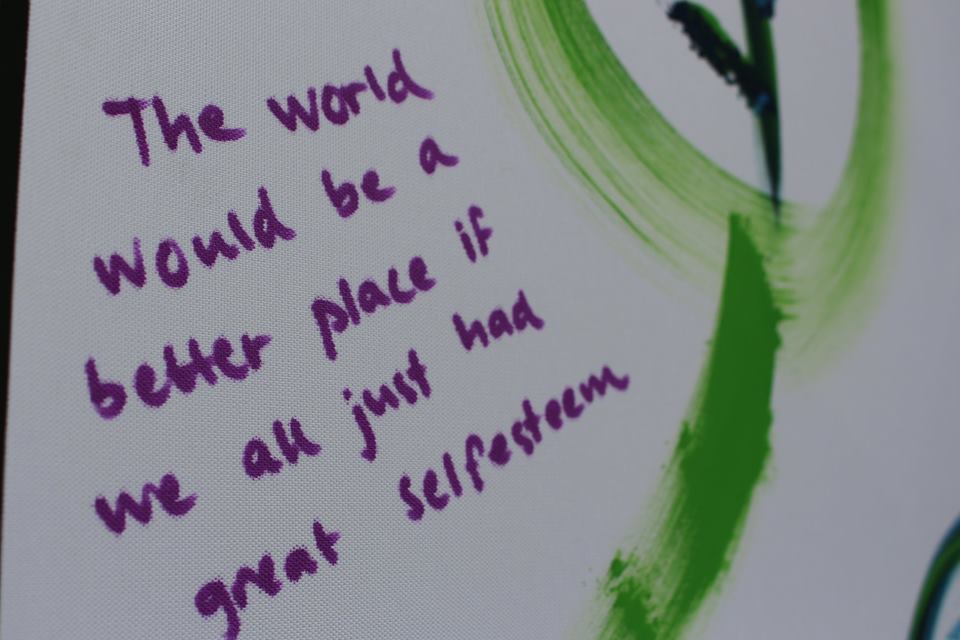 The world
would be a
better place if
we all just had
great selfesteem